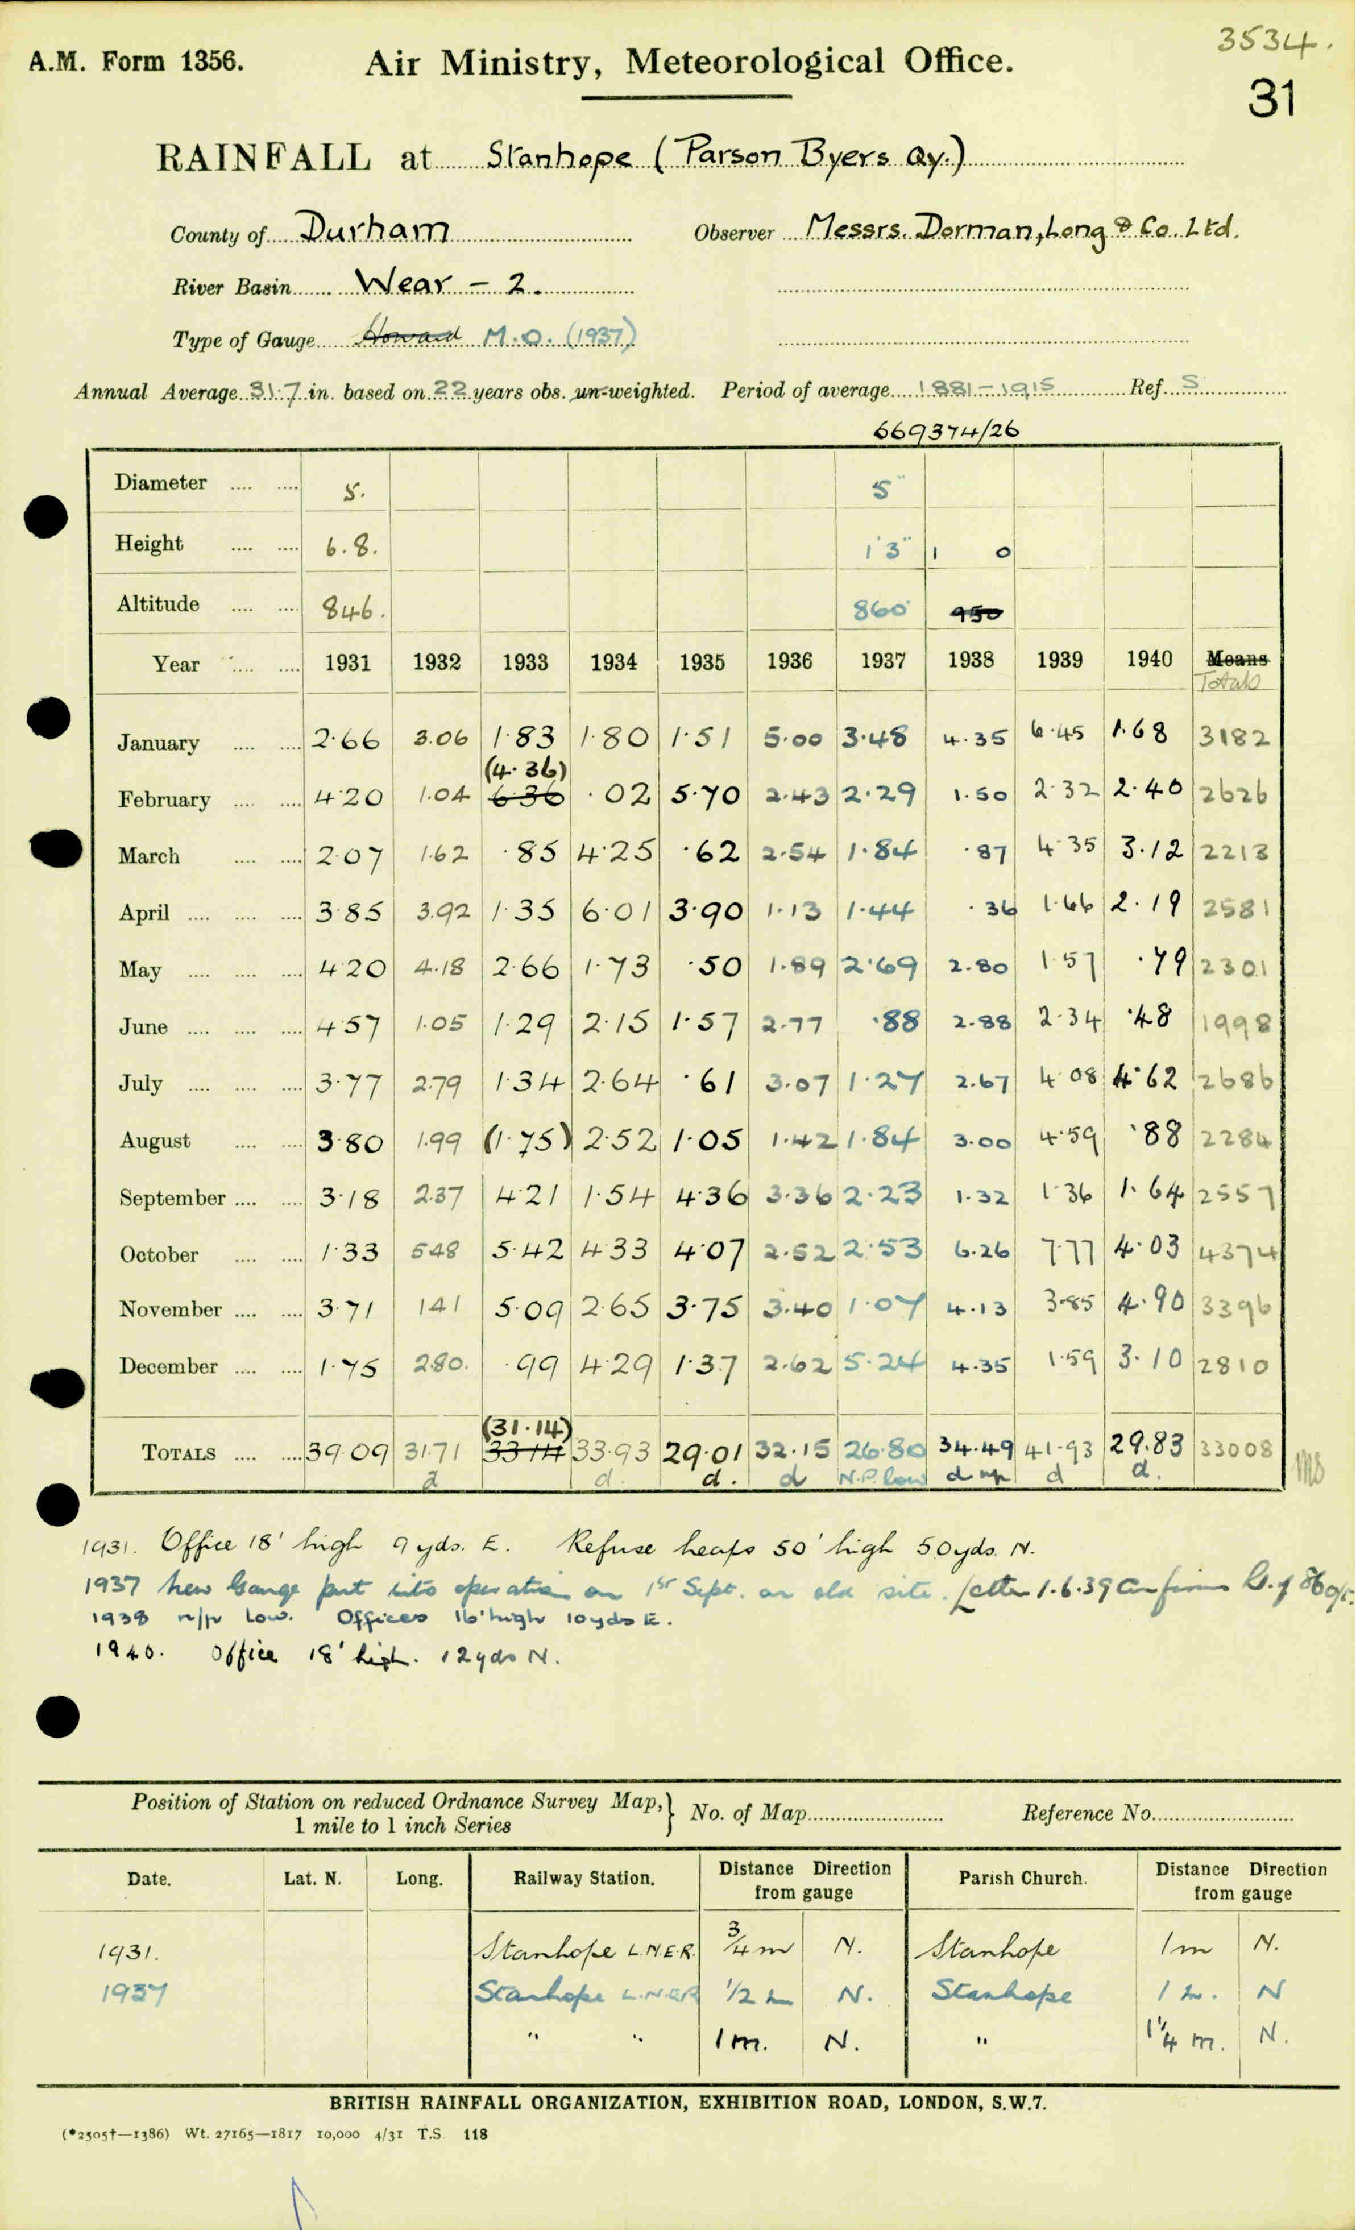 3534.
A.M. Form 1356. Air Ministry, Meteorological Office.
31
RAINFALL at Stanhope (Parson Byers Qy.)
County of Durham Observer Messrs. Dorman, Long & Co. Ltd.
River Basin Wear - 2.
Type of Gauge Howard M.O. (1937)
Annual Average 31.7 in. based on 22 years obs. un-weighted. Period of average 1881-1915 Ref. S
669374/26
Diameter 5. 5"
Height 6.8. 1'3" 1 0
Altitude 846. 860' 950
Year 1931 1932 1933 1934 1935 1936 1937 1938 1939 1940 Means
Totals
January 2.66 3.06 1.83 1.80 1.51 5.00 3.48 4.35 6.45 1.68 3182
(4.36)
February 4.20 1.04 6.36 .02 5.70 2.43 2.29 1.50 2.32 2.40 2626
March 2.07 1.62 .85 4.25 .62 2.54 1.84 .87 4.35 3.12 2213
April 3.85 3.92 1.35 6.01 3.90 1.13 1.44 .36 1.66 2.19 2581
May 4.20 4.18 2.66 1.73 .50 1.89 2.69 2.80 1.57 .79 2301
June 4.57 1.05 1.29 2.15 1.57 2.77 .88 2.88 2.34 .48 1998
July 3.77 2.79 1.34 2.64 .61 3.07 1.27 2.67 4.08 4.62 2686
August 3.80 1.99 (1.75) 2.52 1.05 1.42 1.84 3.00 4.59 .88 2284
September 3.18 2.37 4.21 1.54 4.36 3.36 2.23 1.32 1.36 1.64 2557
October 1.33 5.48 5.42 4.33 4.07 2.52 2.53 6.26 7.77 4.03 4374
November 3.71 1.41 5.09 2.65 3.75 3.40 1.07 4.13 3.85 4.90 3396
December 1.75 2.80. .99 4.29 1.37 2.62 5.24 4.35 1.59 3.10 2810
(31.14)
TOTALS 39.09 31.71 33.14 33.93 29.01 32.15 26.80 34.49 41.93 29.83 33008
d d. d. d N.P. low d d d.
1931. Office 18' high 9 yds. E. Refuse heaps 50' high 50 yds. N.
1937 New Gauge put into operation on 1st Sept. on old site. Letter 1.6.39 Confirms
1938 n/p low. Offices 16' high 10 yds E.
1940. Office 18' high. 12 yds N.
Position of Station on reduced Ordnance Survey Map,} No. of Map Reference No.
1 mile to 1 inch Series
Date. Lat. N. Long. Railway Station. Distance Direction from gauge Parish Church. Distance Direction from gauge
1931. Stanhope L.N.E.R. 3/4 m N. Stanhope 1 m N.
1937 Stanhope L.N.E.R 1/2 m N. Stanhope 1 m. N
" " 1 m. N. " 1 1/4 m. N.
BRITISH RAINFALL ORGANIZATION, EXHIBITION ROAD, LONDON, S.W.7.
(*2505†—1386) Wt. 27165—1817 10,000 4/31 T.S. 118